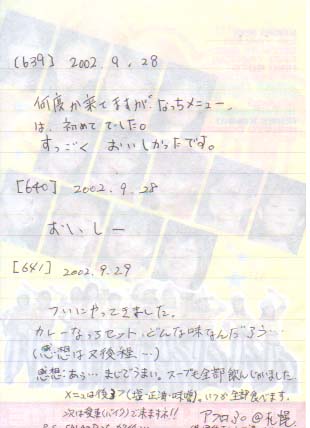 [639] 2002.9.28
何度か来てますが、なっちメニュー、
は、初めてでした。
すっごくおいしかったです。
[640] 2002.9.28
おいしー
[641] 2002.9.29
ついにやってきました。
カレーなっちセット、どんな味なんだろう…
(感想は又後程…)
感想:あぁ…まじでうまい。スープも全部飲んじゃいました。
メニューは後3つ(塩・正油・味噌)。いつか全部食べます。
次は愛車(バイク)で来ますネ!!
@札幌